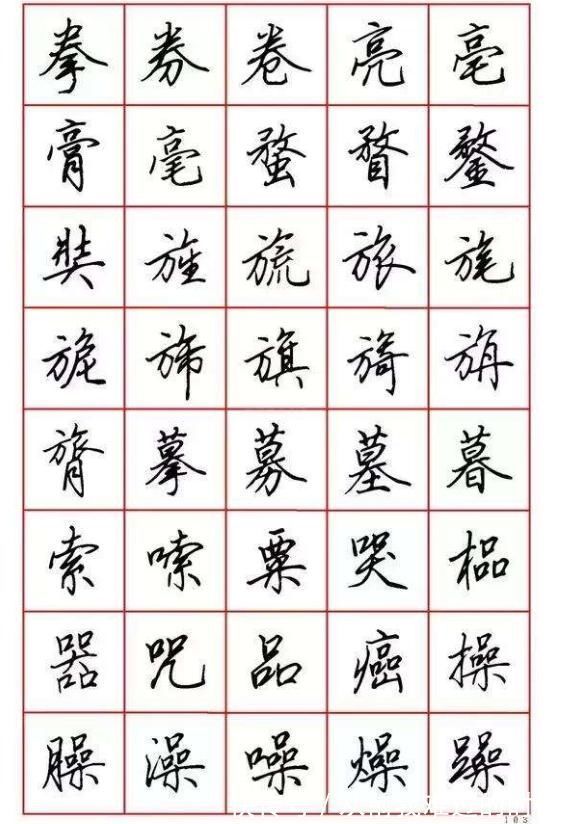 拳 券 卷 亮 亳
膏 毫 蝥 瞀 鍪
奘 旌 旒 旅 旄
旎 旆 旗 旖 旃
膂 摹 募 墓 暮
索 嗦 粟 哭 榀
器 咒 品 癌 操
臊 澡 噪 燥 躁
103